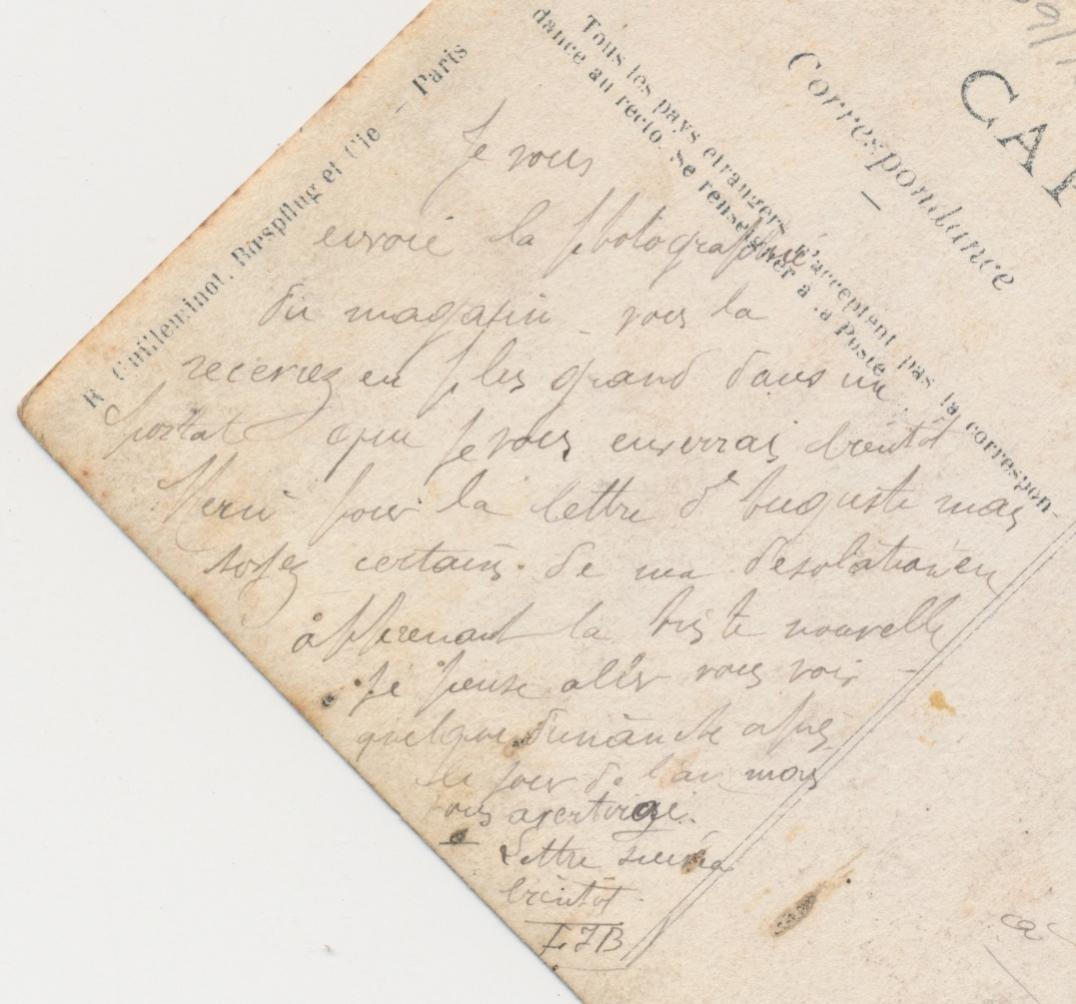 R. Guilleminot, Bœspflug et Cie — Paris
Tous les pays étrangers n'acceptent pas la correspon-
dance au recto. Se renseigner à la Poste
Correspondance
CAR
Je vous
envoie la photographie
du magasin - vous la
recevrez en plus grand dans un
portrat que je vous enverrai bientôt
Merci pour la lettre d'Auguste mais
soyez certains de ma desolation en
apprenant la triste nouvelle
Je pense aller vous voir -
quelque dimanche apres
le jour de l'an mais
vous avertirai.
Lettre suivra
bientôt